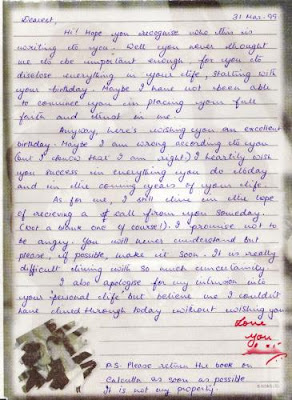 Dearest,
31 Mar. 99
Hi! Hope you recognise who this is
writing to you. Well you never thought
me to be important enough, for you to
disclose everything in your life, starting with
your birthday. Maybe I have not been able
to convince you in placing your full
faith and trust in me.
Anyway, here's wishing you an excellent
birthday. Maybe I am wrong according to you
(but I know that I am right) I heartily wish
you success in everything you do today
and in the coming years of your life.
As for me, I still live in the hope
of recieving a call from you someday.
(Not a blank one of course!). I promise not to
be angry. You will never understand but
please, if possible, make it soon. It is really
difficult living with so much uncertainity.
I also apologise for my intrusion into
your 'personal life' but believe me I couldn't
have lived through today without wishing you.
Love
you
P.S. Please return the book on
Calcutta as soon as possible
It is not my property.